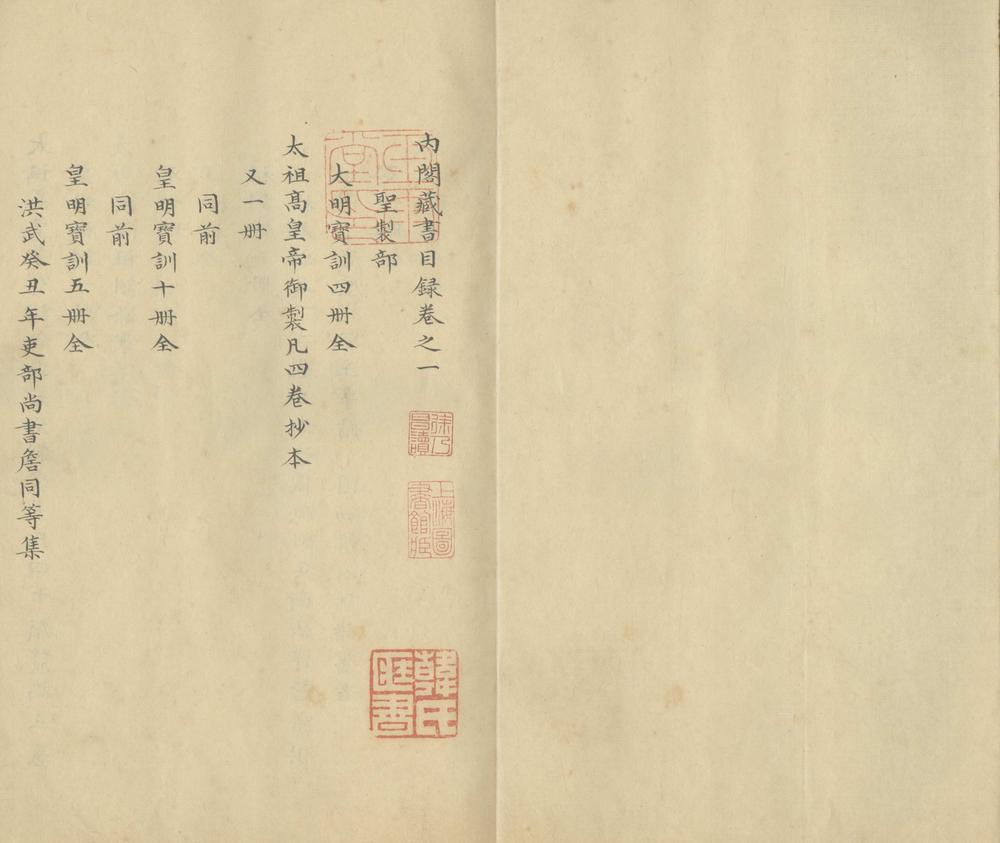 内閣藏書目録卷之一
聖製部
大明寶訓四冊全
太祖髙皇帝御製凡四卷抄本
又一冊
同前
皇明寶訓十冊全
同前
皇明寶訓五冊全
洪武癸丑年吏部尚書詹同等集
徐乃昌讀
上海圖書館藏
韓氏藏書